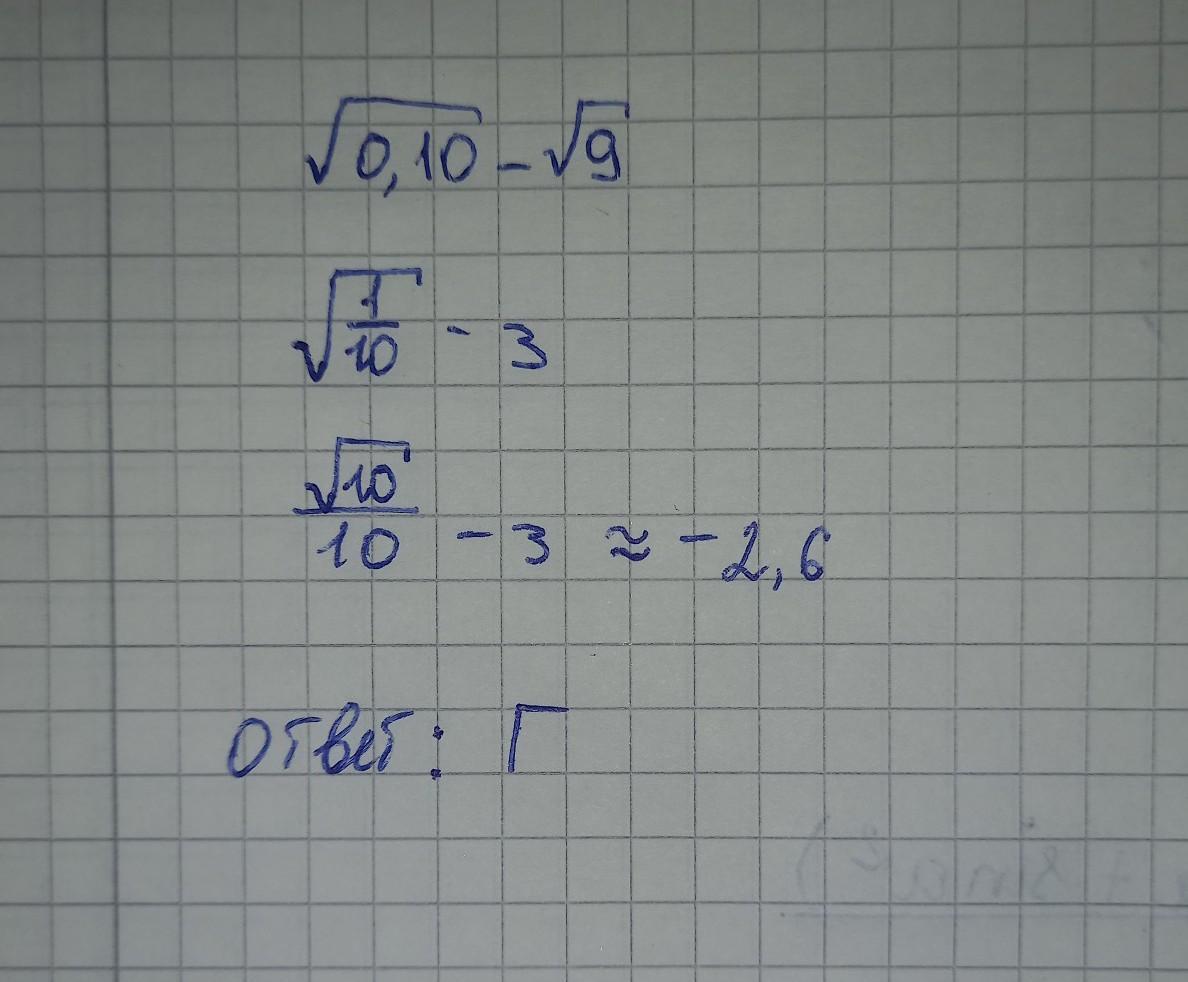 √0,10 - √9
√(1/10) - 3
√10/10 - 3 ≈ -2,6
ответ: Г
+ sin a²)